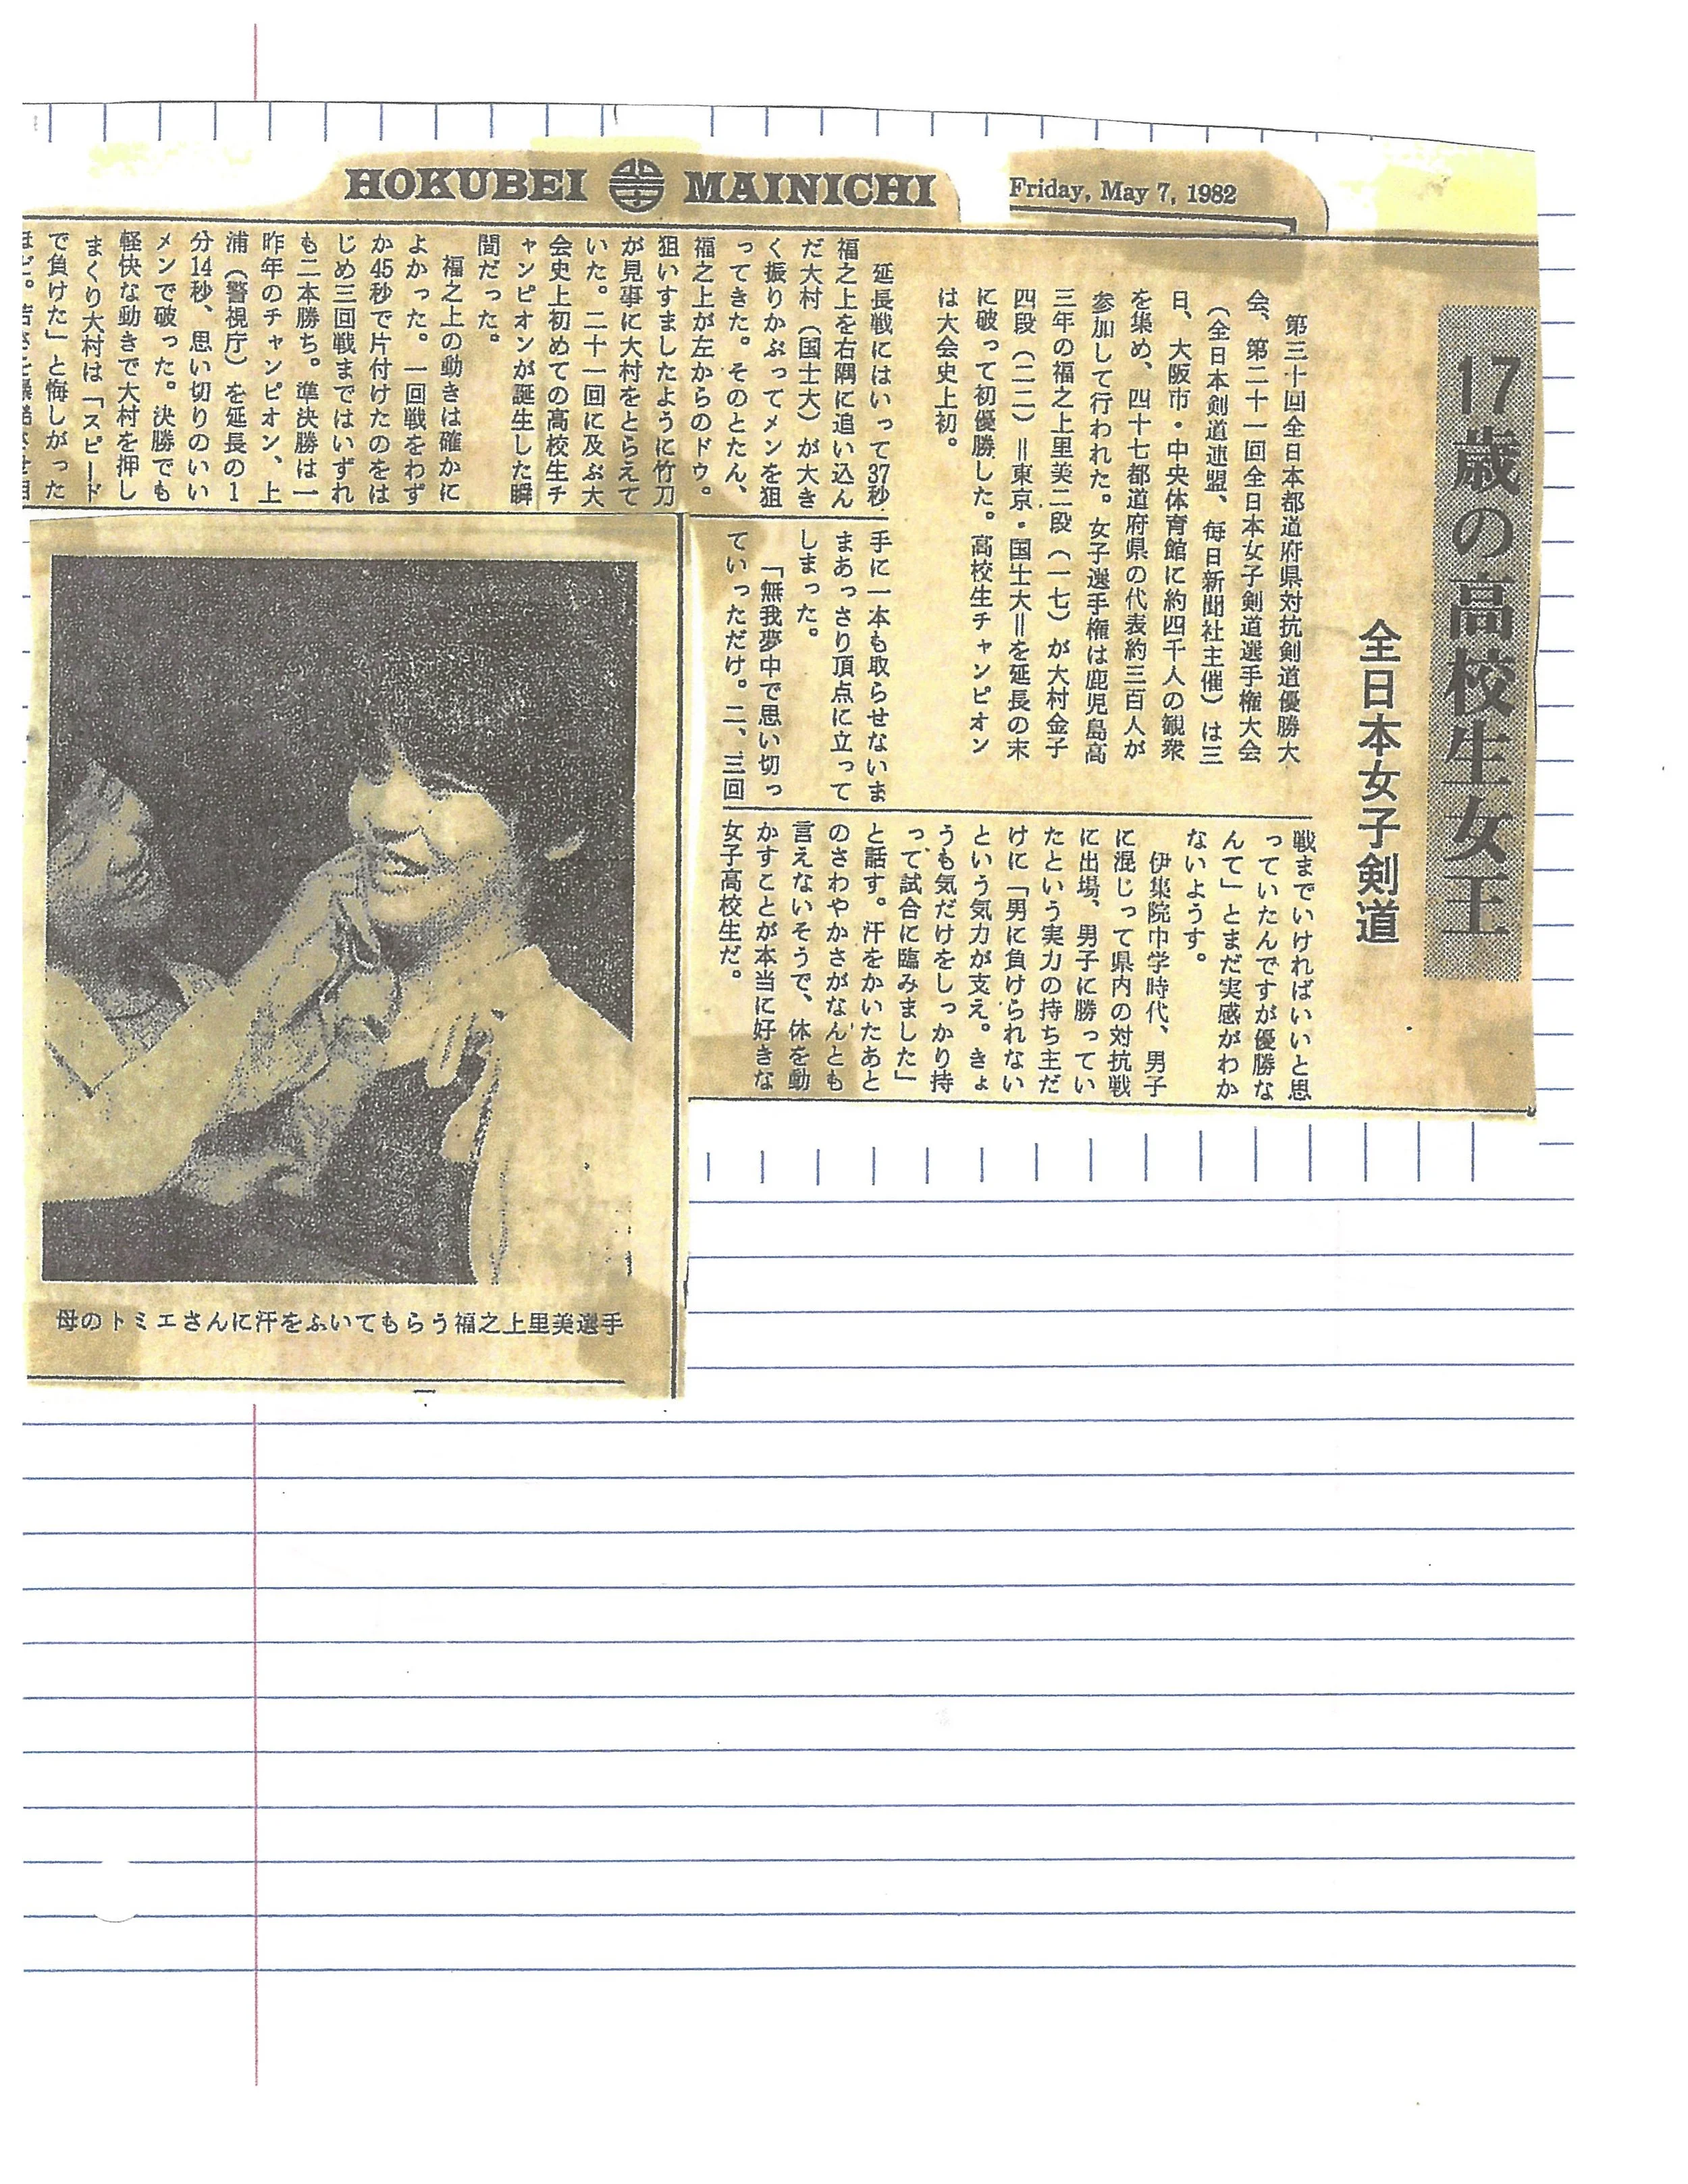 HOKUBEI MAINICHI
Friday, May 7, 1982
17歳の高校生女王
全日本女子剣道
第三十回全日本都道府県対抗剣道優勝大
会、第二十一回全日本女子剣道選手権大会
（全日本剣道連盟、毎日新聞社主催）は三
日、大阪市・中央体育館に約四千人の観衆
を集め、四十七都道府県の代表約三百人が
参加して行われた。女子選手権は鹿児島高
三年の福之上里美二段（一七）が大村金子
四段（二二）＝東京・国士大＝を延長の末
に破って初優勝した。高校生チャンピオン
は大会史上初。
延長戦にはいって37秒
福之上を右隅に追い込ん
だ大村（国士大）が大き
く振りかぶってメンを狙
ってきた。そのとたん、
福之上が左からのドウ。
狙いすましたように竹刀
が見事に大村をとらえて
いた。二十一回に及ぶ大
会史上初めての高校生チ
ャンピオンが誕生した瞬
間だった。
福之上の動きは確かに
よかった。一回戦をわず
か45秒で片付けたのをは
じめ三回戦まではいずれ
も二本勝ち。準決勝は一
昨年のチャンピオン、上
浦（警視庁）を延長の1
分14秒、思い切りのいい
メンで破った。決勝でも
軽快な動きで大村を押し
まくり大村は「スピード
で負けた」と悔しがった
手に一本も取らせないま
まあっさり頂点に立って
しまった。
「無我夢中で思い切っ
ていっただけ。二、三回
戦までいければいいと思
っていたんですが優勝な
んて」とまだ実感がわか
ないようす。
伊集院中学時代、男子
に混じって県内の対抗戦
に出場、男子に勝ってい
たという実力の持ち主だ
けに「男に負けられない
という気力が支え。きょ
うも気だけをしっかり持
って試合に臨みました」
と話す。汗をかいたあと
のさわやかさがなんとも
言えないそうで、体を動
かすことが本当に好きな
女子高校生だ。
母のトミエさんに汗をふいてもらう福之上里美選手